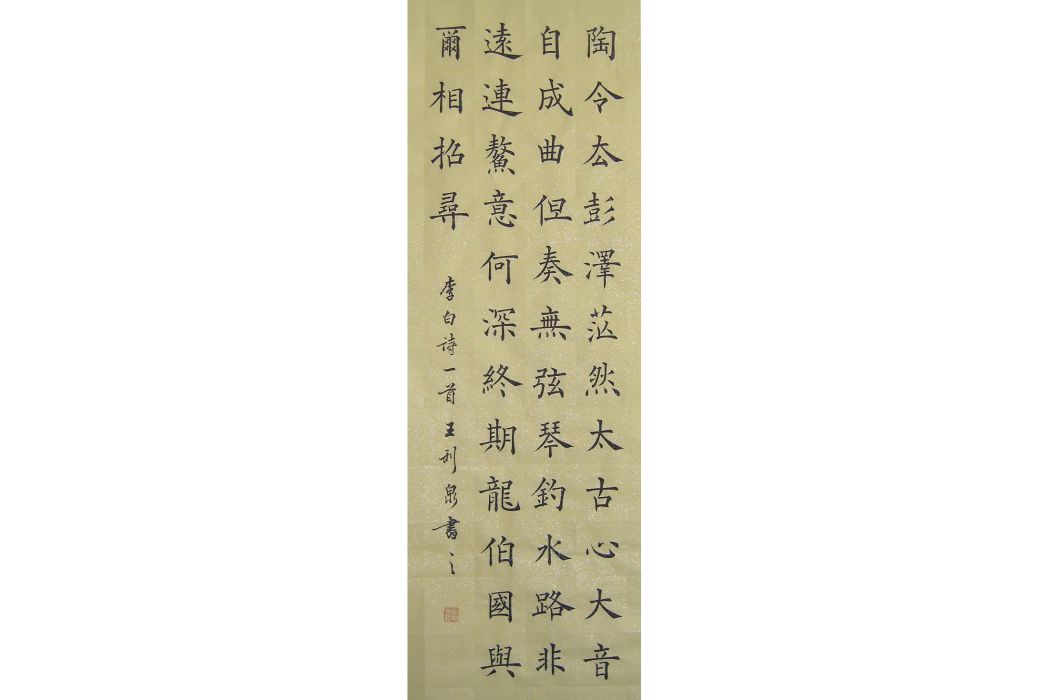 陶令去彭澤茫然太古心大音
自成曲但奏無弦琴釣水路非
遠連鰲意何深終期龍伯國與
爾相招尋
李白詩一首王利泉書之